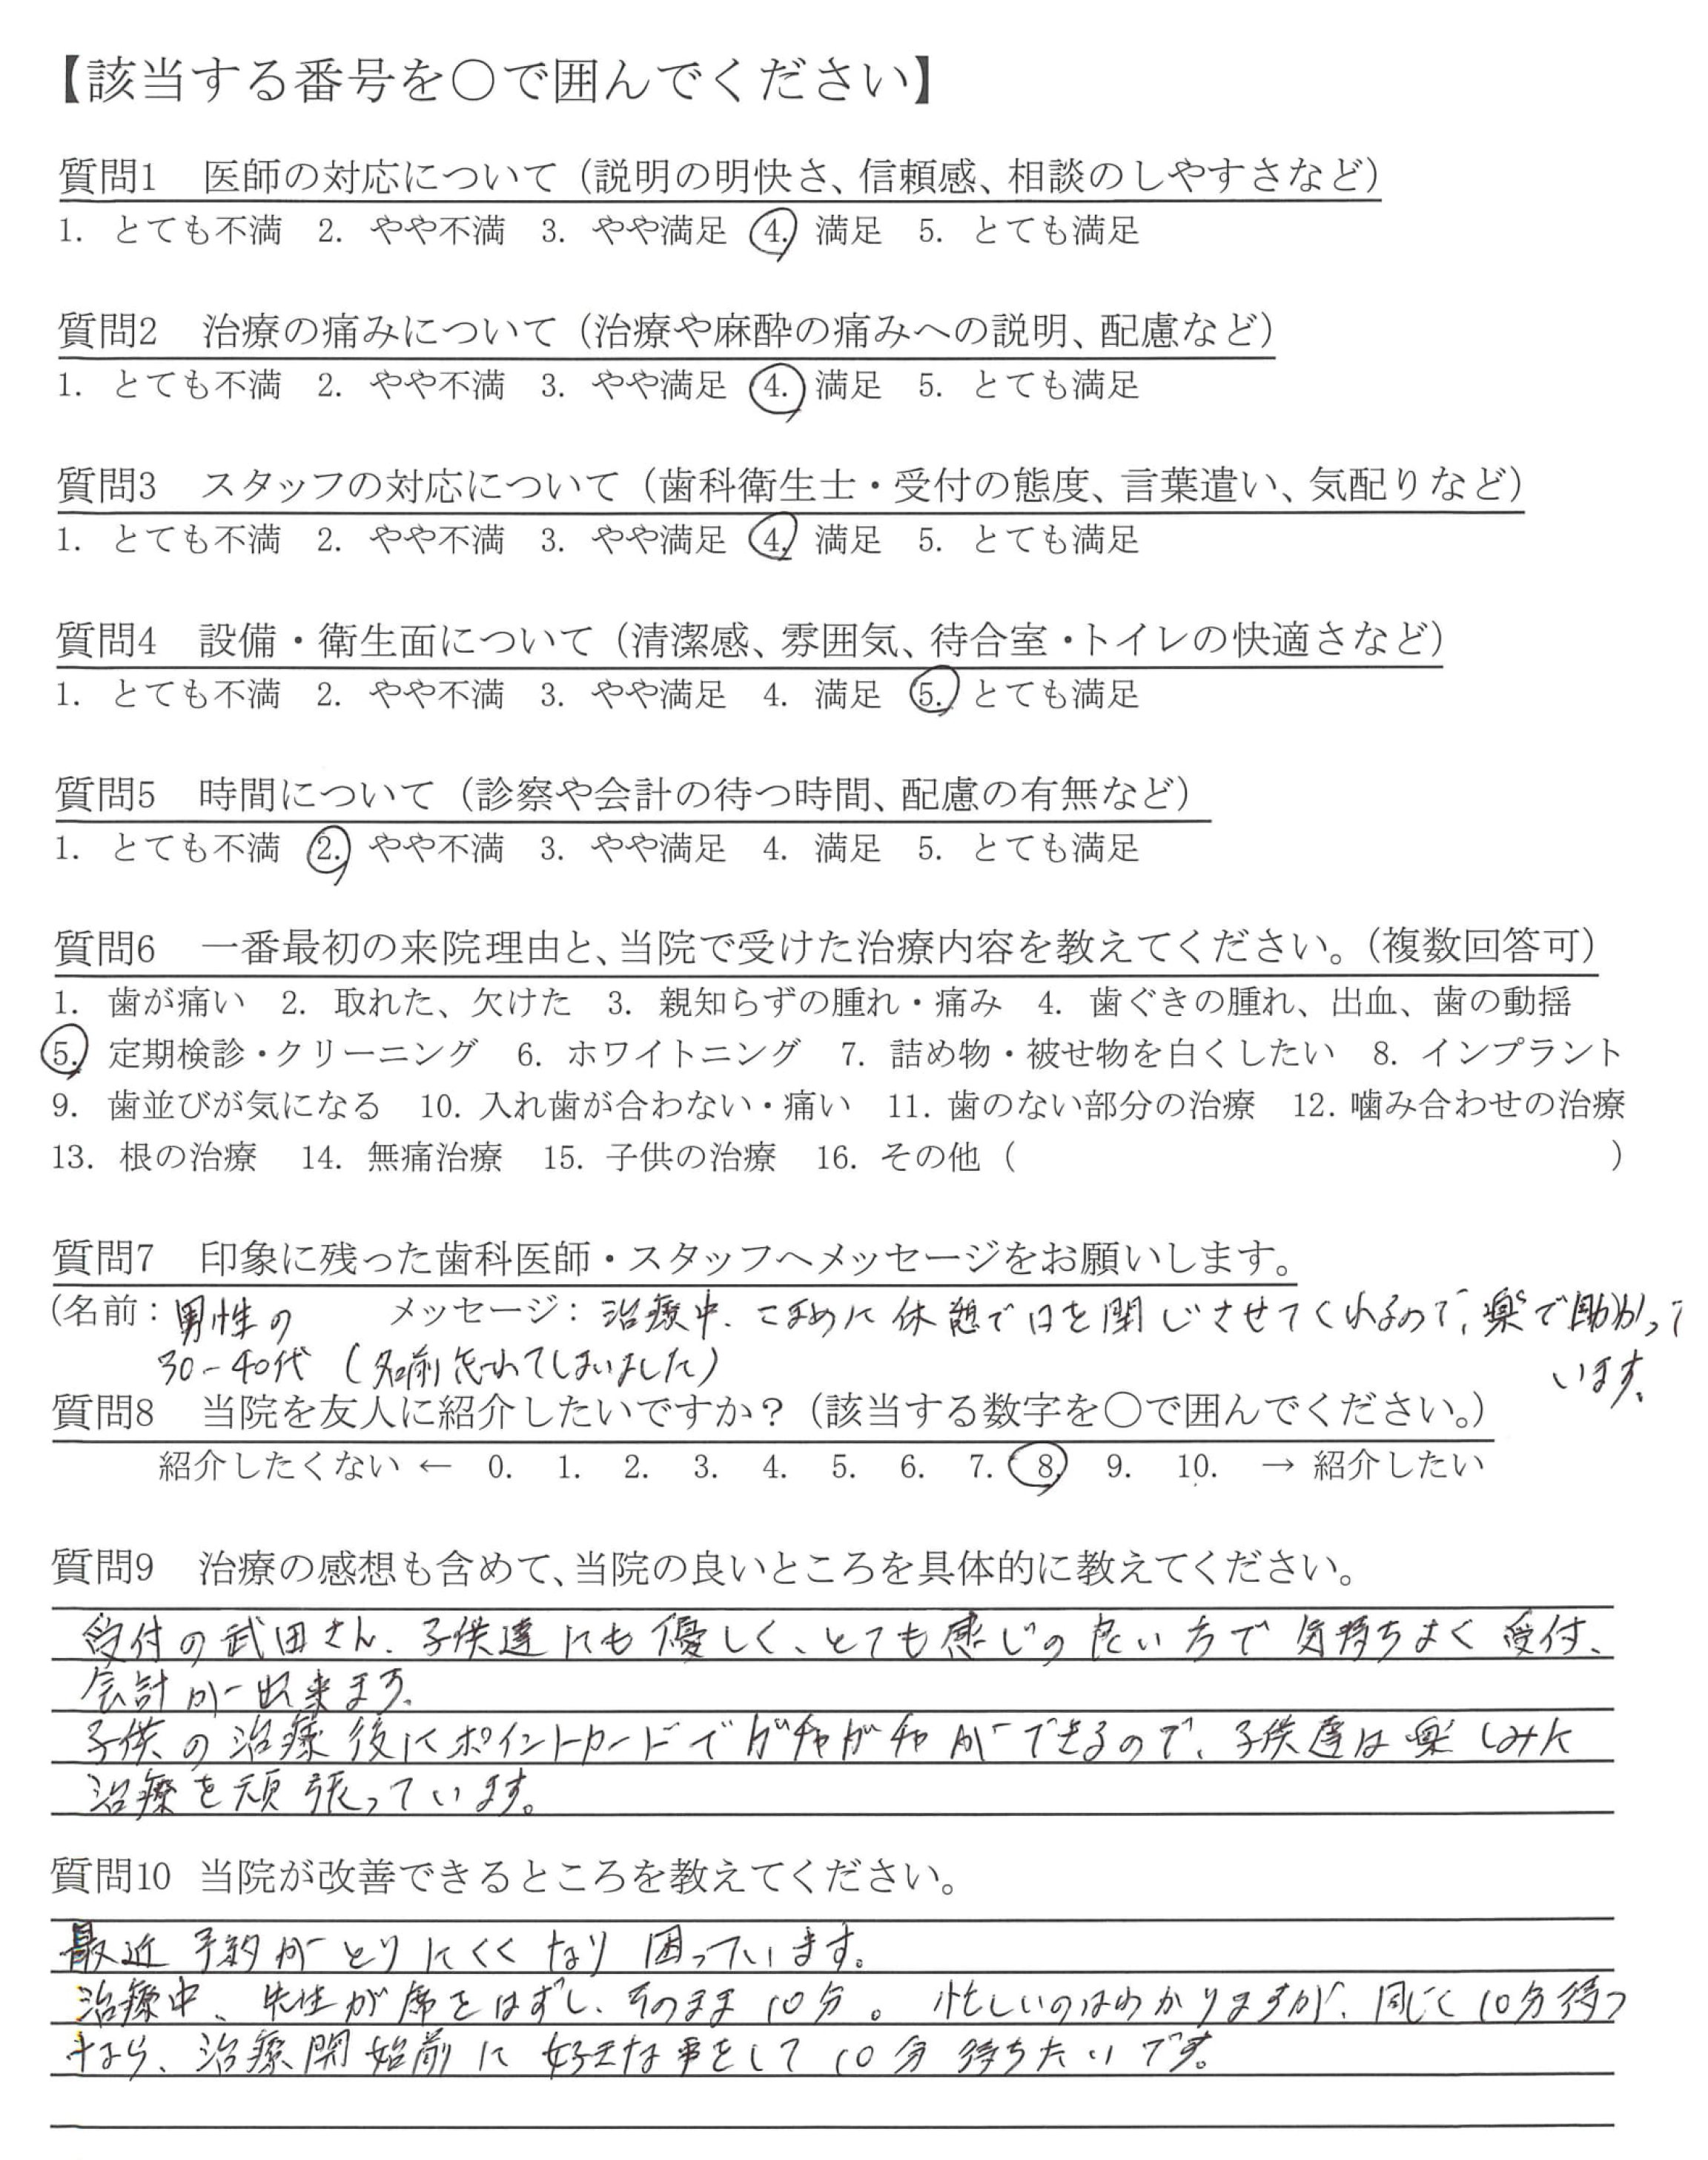 【該当する番号を〇で囲んでください】
質問1　医師の対応について（説明の明快さ、信頼感、相談のしやすさなど）
1. とても不満　2. やや不満　3. やや満足　4. 満足　5. とても満足
質問2　治療の痛みについて（治療や麻酔の痛みへの説明、配慮など）
1. とても不満　2. やや不満　3. やや満足　4. 満足　5. とても満足
質問3　スタッフの対応について（歯科衛生士・受付の態度、言葉遣い、気配りなど）
1. とても不満　2. やや不満　3. やや満足　4. 満足　5. とても満足
質問4　設備・衛生面について（清潔感、雰囲気、待合室・トイレの快適さなど）
1. とても不満　2. やや不満　3. やや満足　4. 満足　5. とても満足
質問5　時間について（診察や会計の待つ時間、配慮の有無など）
1. とても不満　2. やや不満　3. やや満足　4. 満足　5. とても満足
質問6　一番最初の来院理由と、当院で受けた治療内容を教えてください。（複数回答可）
1. 歯が痛い　2. 取れた、欠けた　3. 親知らずの腫れ・痛み　4. 歯ぐきの腫れ、出血、歯の動揺
5. 定期検診・クリーニング　6. ホワイトニング　7. 詰め物・被せ物を白くしたい　8. インプラント
9. 歯並びが気になる　10. 入れ歯が合わない・痛い　11. 歯のない部分の治療　12. 噛み合わせの治療
13. 根の治療　14. 無痛治療　15. 子供の治療　16. その他（　　　）
質問7　印象に残った歯科医師・スタッフへメッセージをお願いします。
（名前：男性の　メッセージ：治療中、こまめに休憩で口を閉じさせてくれるので、楽で助かって
30-40代（名前忘れてしまいました）　います。
質問8　当院を友人に紹介したいですか？（該当する数字を〇で囲んでください。）
紹介したくない ← 0. 1. 2. 3. 4. 5. 6. 7. 8. 9. 10. → 紹介したい
質問9　治療の感想も含めて、当院の良いところを具体的に教えてください。
受付の武田さん、子供達にも優しく、とても感じの良い方で気持ちよく受付、
会計が出来ます。
子供の治療後にポイントカードでガチャガチャができるので、子供達は楽しみに
治療を頑張っています。
質問10 当院が改善できるところを教えてください。
最近予約がとりにくくなり困っています。
治療中、先生が席をはずし、そのまま10分。忙しいのはわかりますが、同じく10分待つ
なら、治療開始前に好きな事をして10分待ちたいです。